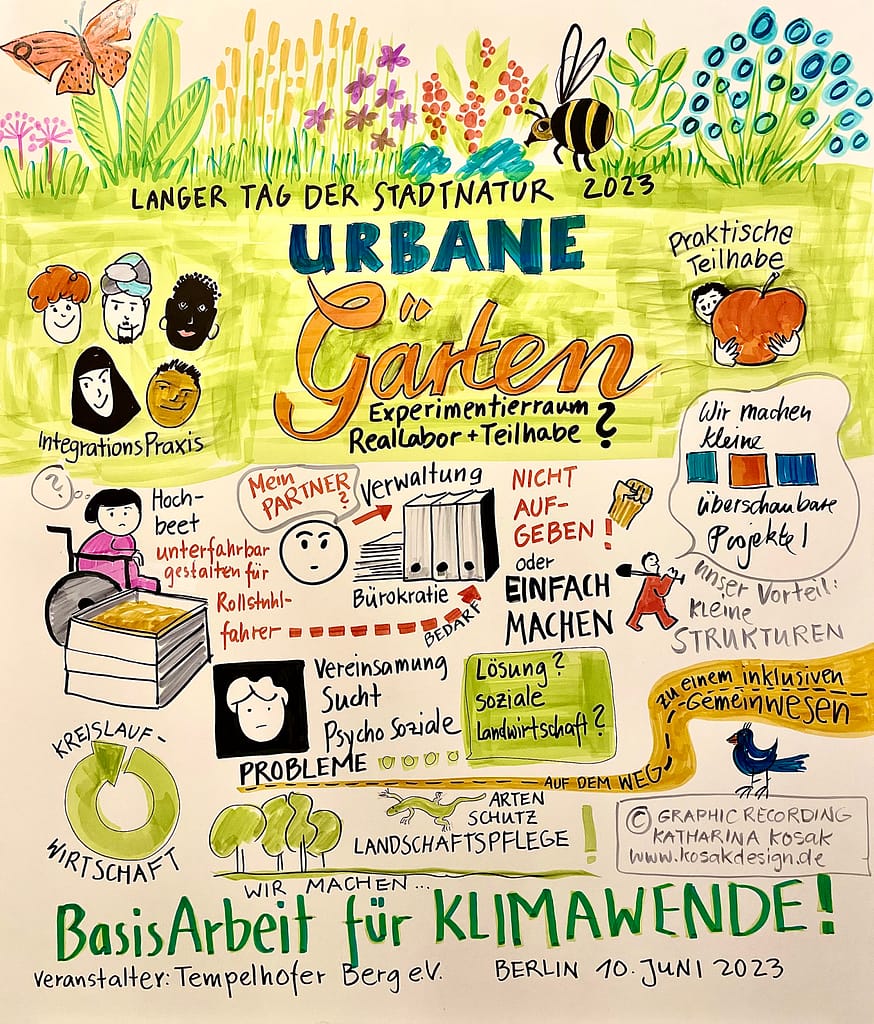 LANGER TAG DER STADTNATUR 2023
URBANE
Gärten
Experimentierraum
RealLabor + Teilhabe ?
Praktische
Teilhabe
IntegrationsPraxis
Wir machen
kleine
überschaubare
Projekte!
unser Vorteil:
kleine
STRUKTUREN
?
Hoch-
beet
unterfahrbar
gestalten für
Rollstuhl-
fahrer
Mein
PARTNER
?
Verwaltung
Bürokratie
BEDARF
NICHT
AUF-
GEBEN!
oder
EINFACH
MACHEN
Vereinsamung
Sucht
PsychoSoziale
PROBLEME
Lösung?
soziale
Landwirtschaft?
AUF DEM WEG
zu einem inklusiven
Gemeinwesen
KREISLAUF-
WIRTSCHAFT
ARTEN
SCHUTZ
LANDSCHAFTSPFLEGE !
© GRAPHIC RECORDING
KATHARINA KOSAK
www.kosakdesign.de
WIR MACHEN...
BasisArbeit für KLIMAWENDE!
Veranstalter: Tempelhofer Berg e.V. BERLIN 10. JUNI 2023